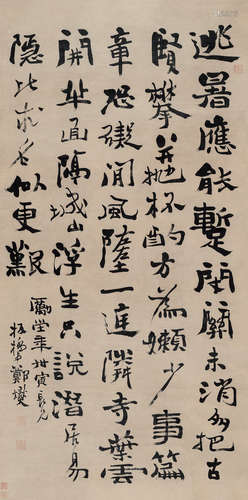 逃暑應能蹔閉關未消多把古
賢攀並抛杯酌方為嬾少事篇
章恐礙閒風墮一庭隣寺葉雲
開半面隔城山浮生只說潛居易
隱比求名似更艱
勵堂年世寅長兄
板橋鄭燮